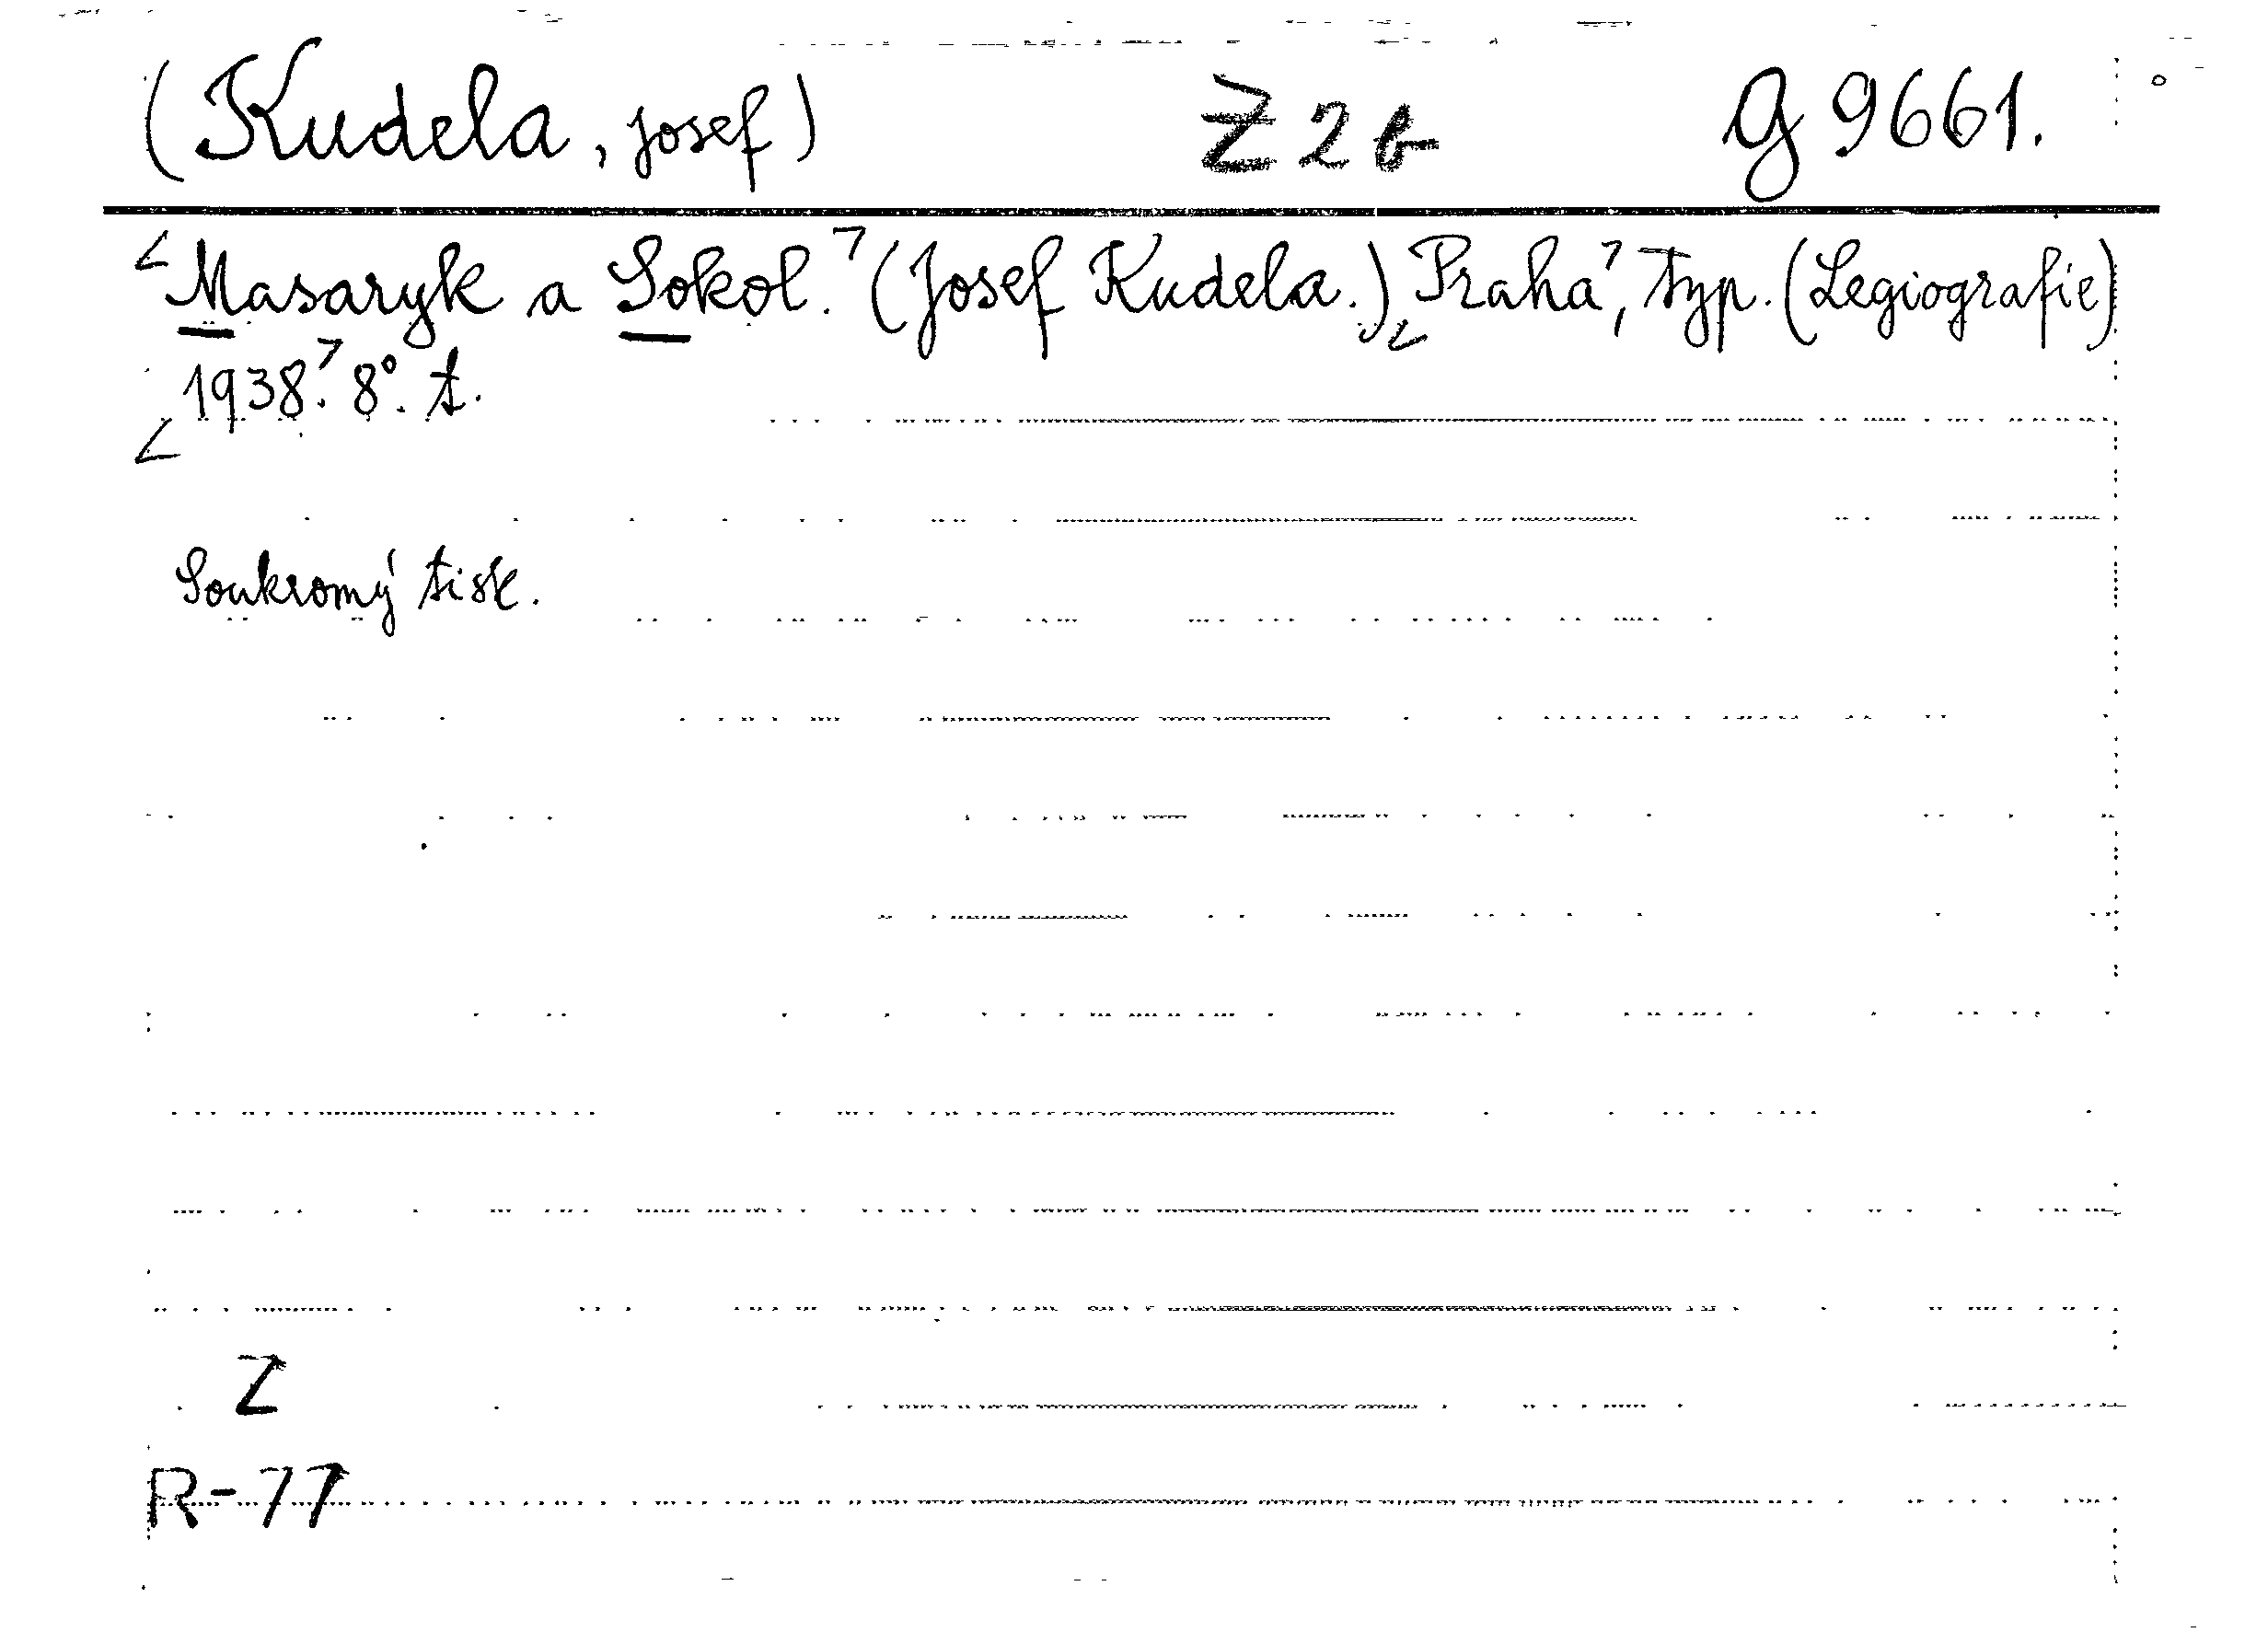 (Kudela, Josef) Z 2 b G 9661.
Masaryk a Sokol. (Josef Kudela.) Praha, Typ. (Legiografie)
1938. 8°. t.
Soukromý tisk.
Z
R-77